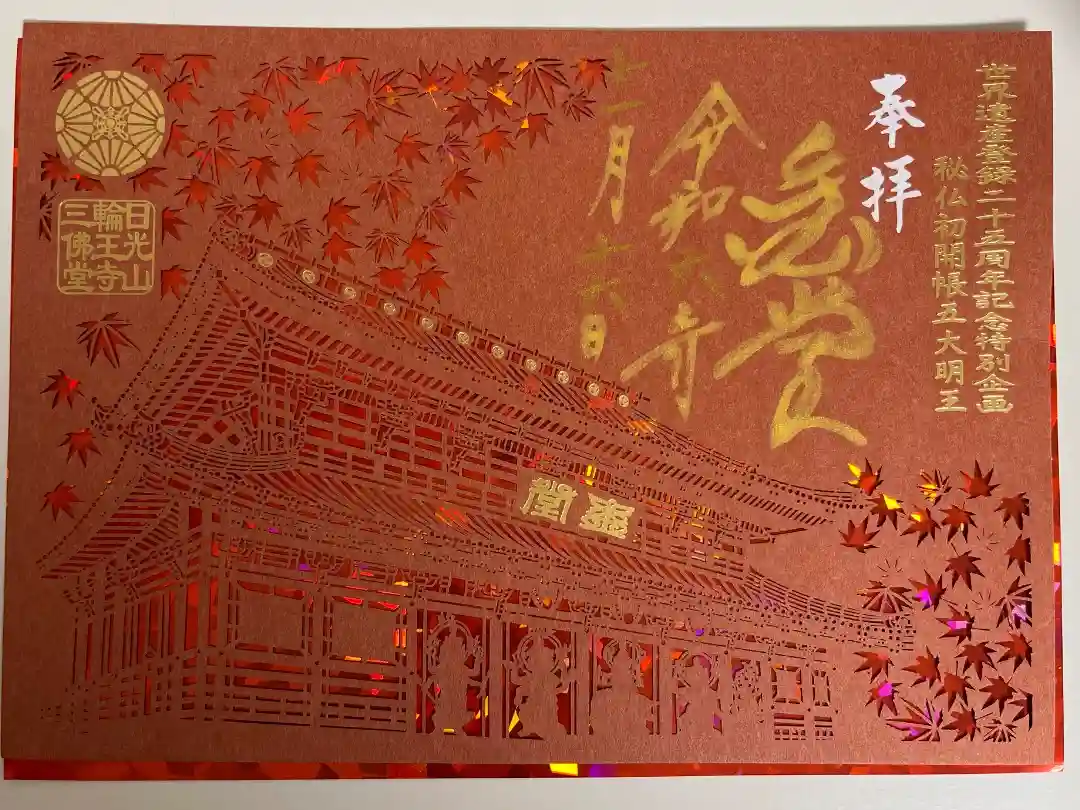 世界遺産登録二十五周年記念特別企画
秘仏初開帳五大明王
奉拝
堂
令和六年
十一月十六日
金堂
日光山
輪王寺
三佛堂